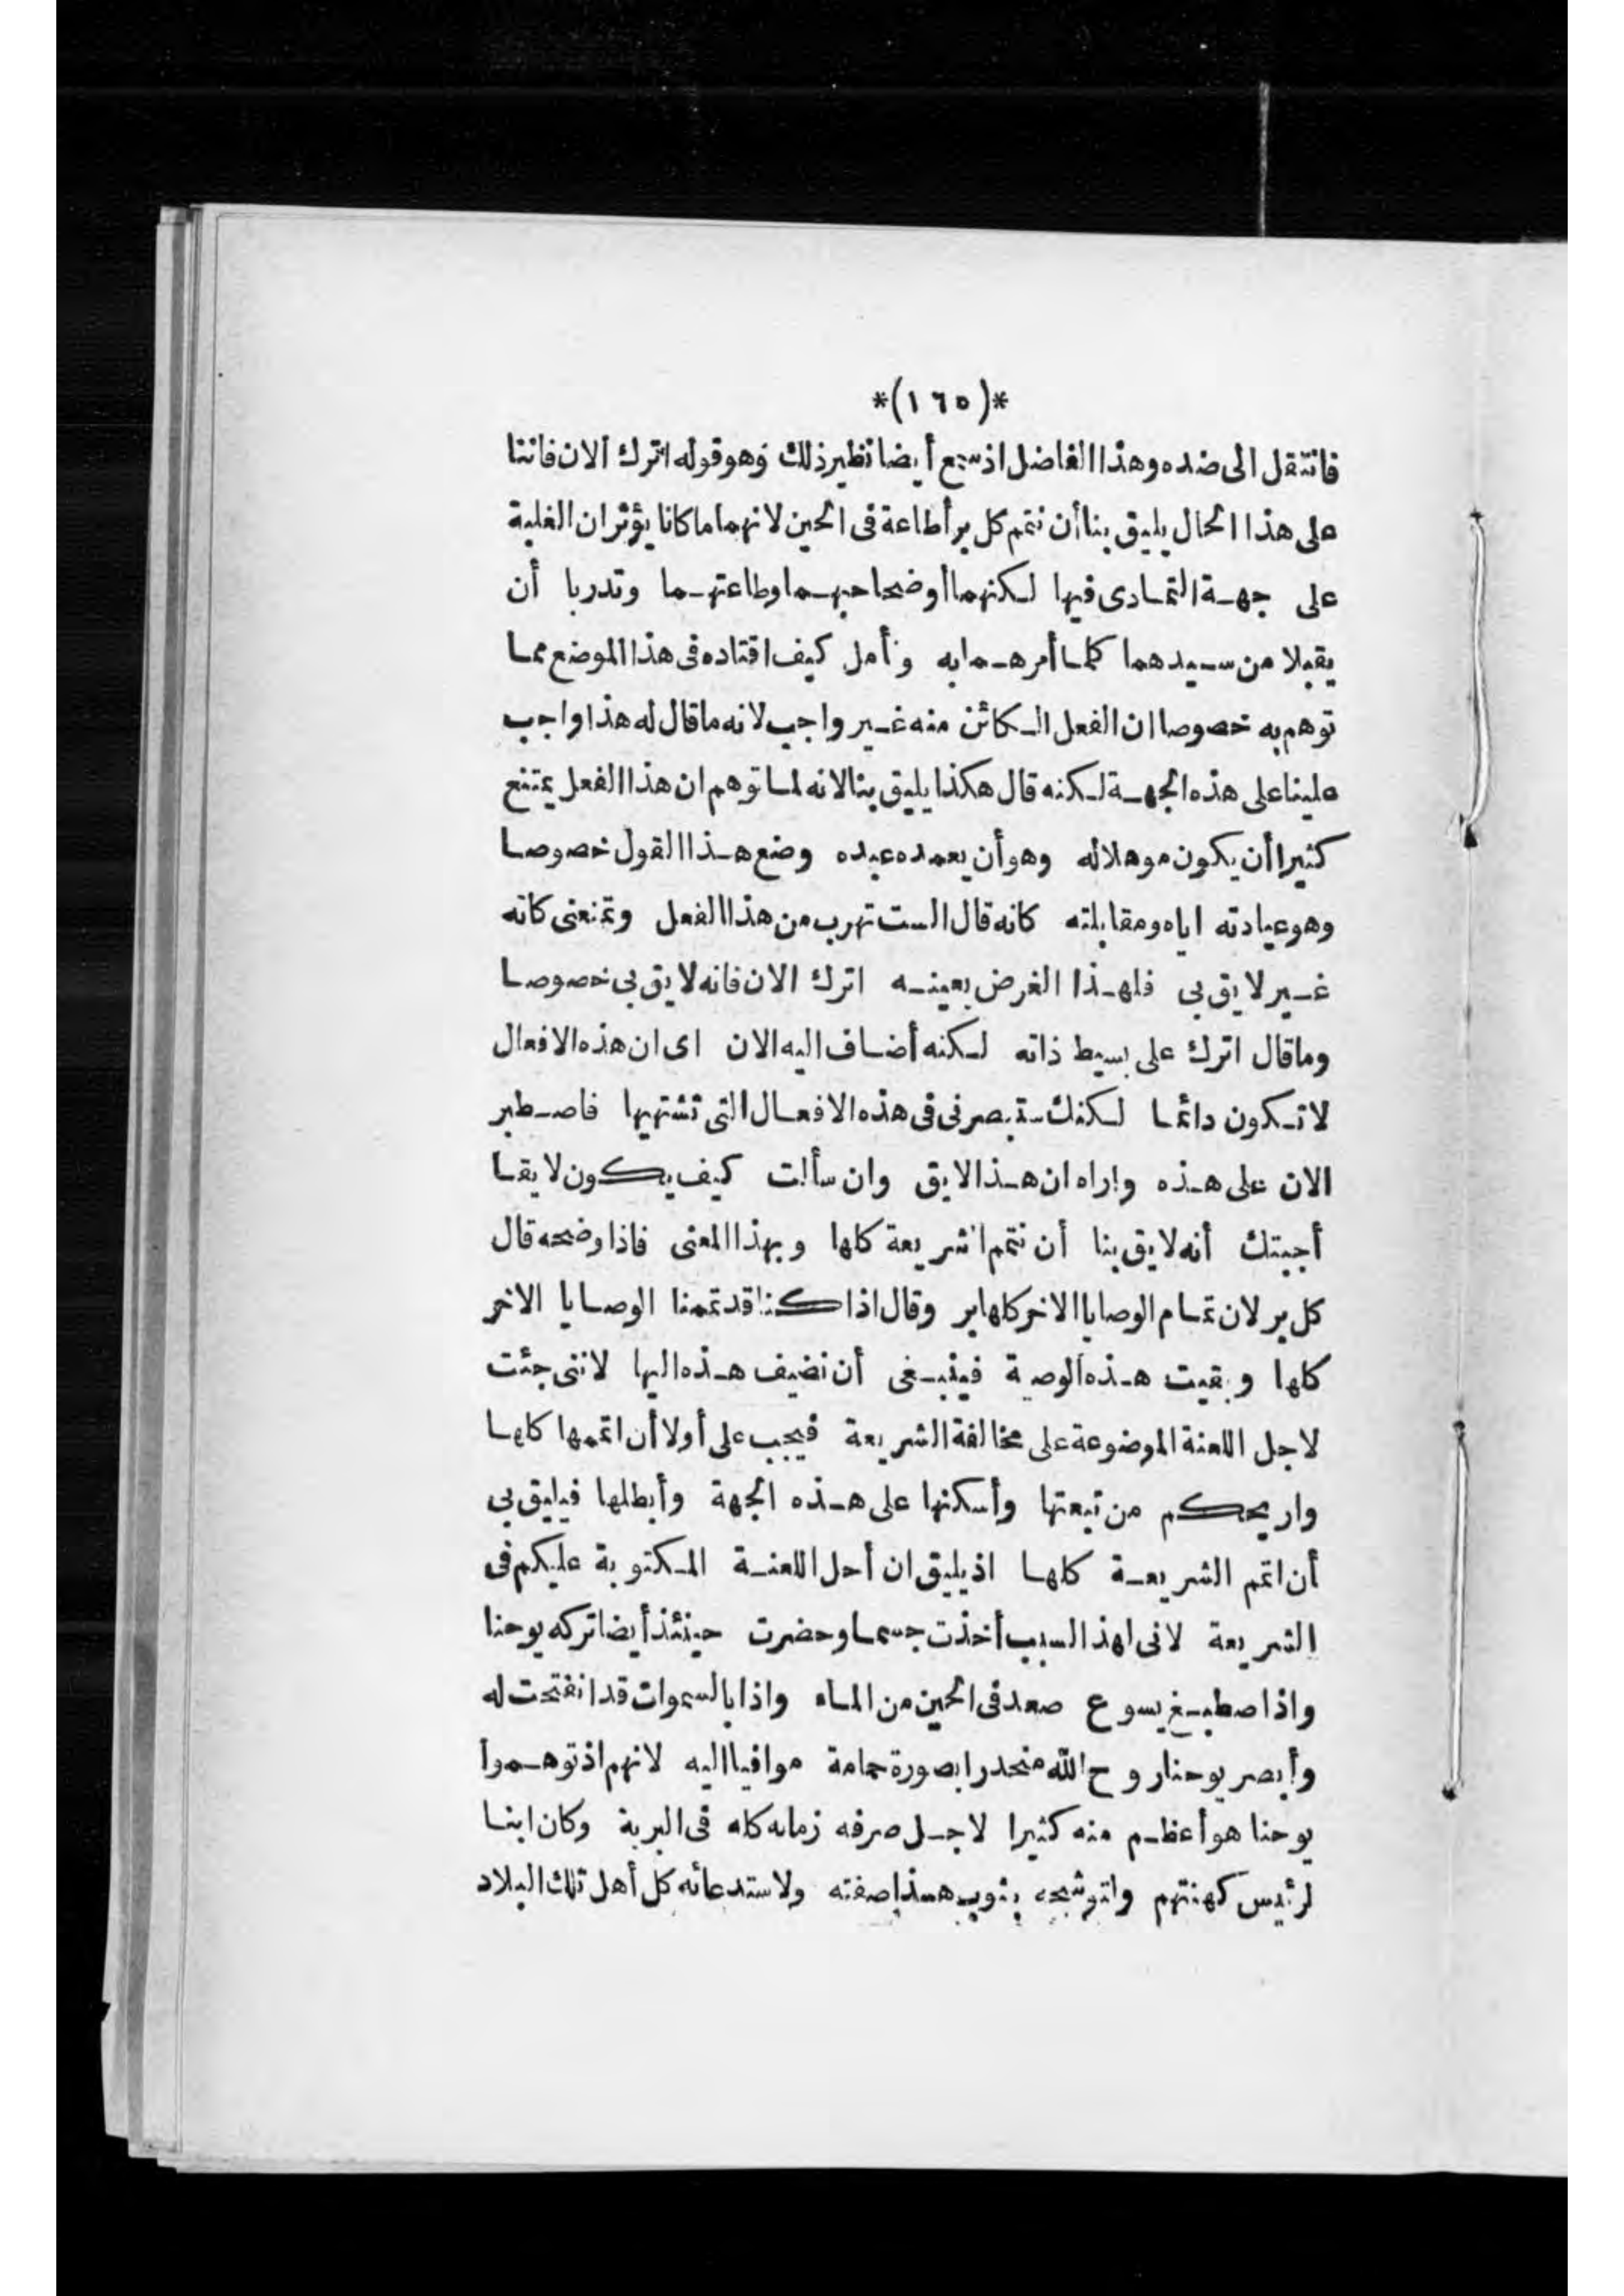 *(١٦٥)*
فانتقل الى ضده وهذا الفاضل اذ سمع أيضا نظير ذلك وهو قوله اترك الان فاننا
على هذا الحال يليق بنا أن نتم كل بر أطاعة فى الحين لانهما ما كانا يؤثران الغلبة
على جهة التمادى فيها لكنهما أوضحا حبهما وطاعتهما وتدربا أن
يقبلا من سيدهما كلما أمرهما به وتأمل كيف اقتاده فى هذا الموضع مما
توهم به خصوصا ان الفعل الكائن منه غير واجب لانه ما قال له هذا واجب
علينا على هذه الجهة لكنه قال هكذا يليق بنا لانه لما توهم ان هذا الفعل يمتنع
كثيرا أن يكون موهلا له وهو أن يعمده عبده وضع هذا القول خصوصا
وهو عبادته اياه ومقابلته كانه قال الست تهرب من هذا الفعل وتمنعنى كانه
غير لايق بى فلهذا الغرض بعينه اترك الان فانه لايق بى خصوصا
وما قال اترك على بسيط ذاته لكنه أضاف اليه الان اى ان هذه الافعال
لا تكون دائما لكنك ستبصرنى فى هذه الافعال التى تشتهيها فاصطبر
الان على هذه واراه ان هذا لايق وان سألت كيف يكون لايقا
أجبتك أنه لايق بنا أن نتم الشريعة كلها وبهذا المعنى فاذا وضحه قال
كل بر لان تمام الوصايا الاخر كلها بر وقال اذا كنا قد تممنا الوصايا الاخر
كلها وبقيت هذه الوصية فينبغى أن نضيف هذه اليها لاننى جئت
لاجل اللعنة الموضوعة على مخالفة الشريعة فيجب على أولا أن اتممها كلها
واريحكم من تبعتها وأسكنها على هذه الجهة وأبطلها فيليق بى
أن اتمم الشريعة كلها اذ يليق ان أحل اللعنة المكتوبة عليكم فى
الشريعة لانى لهذا السبب أخذت جسما وحضرت حينئذ أيضا تركه يوحنا
واذا صطبغ يسوع صعد فى الحين من الماء واذا بالسموات قد انفتحت له
وأبصر يوحنا روح الله منحدرا بصورة حمامة موافيا اليه لانهم اذ توهموا
يوحنا هو أعظم منه كثيرا لاجل صرفه زمانه كله فى البرية وكان ابنا
لرئيس كهنتهم واتوشحه بثوب هذا صفته ولاستدعائه كل أهل تلك البلاد